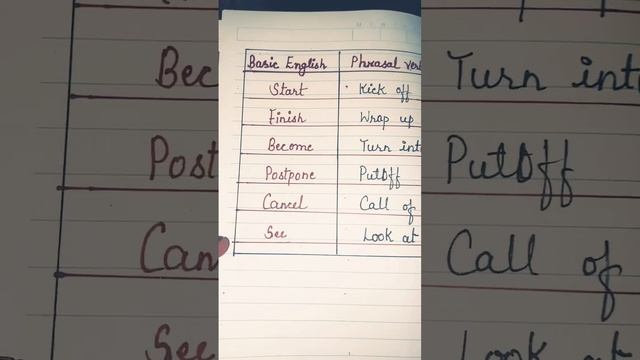 Basic English Phrasal ver
Start Kick off
Finish Wrap up
Become Turn int
Postpone PutOff
Cancel Call of
See Look at